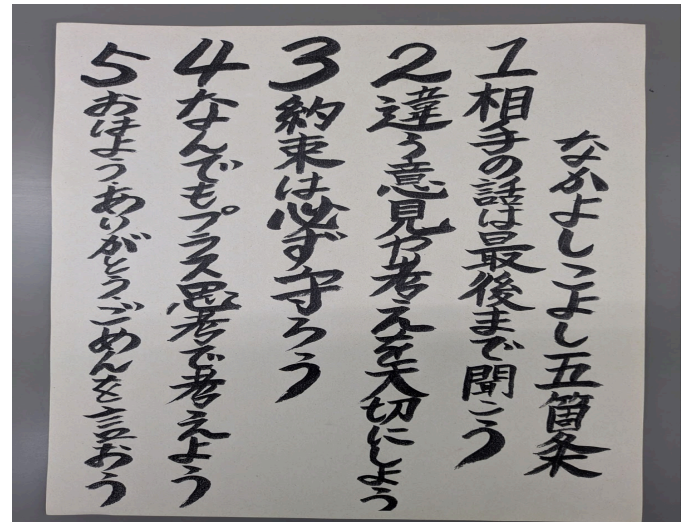 なかよしこよし五箇条
1相手の話は最後まで聞こう
2違う意見や考えを大切にしよう
3約束は必ず守ろう
4なんでもプラス思考で考えよう
5おはよう・ありがとう・ごめんを言おう